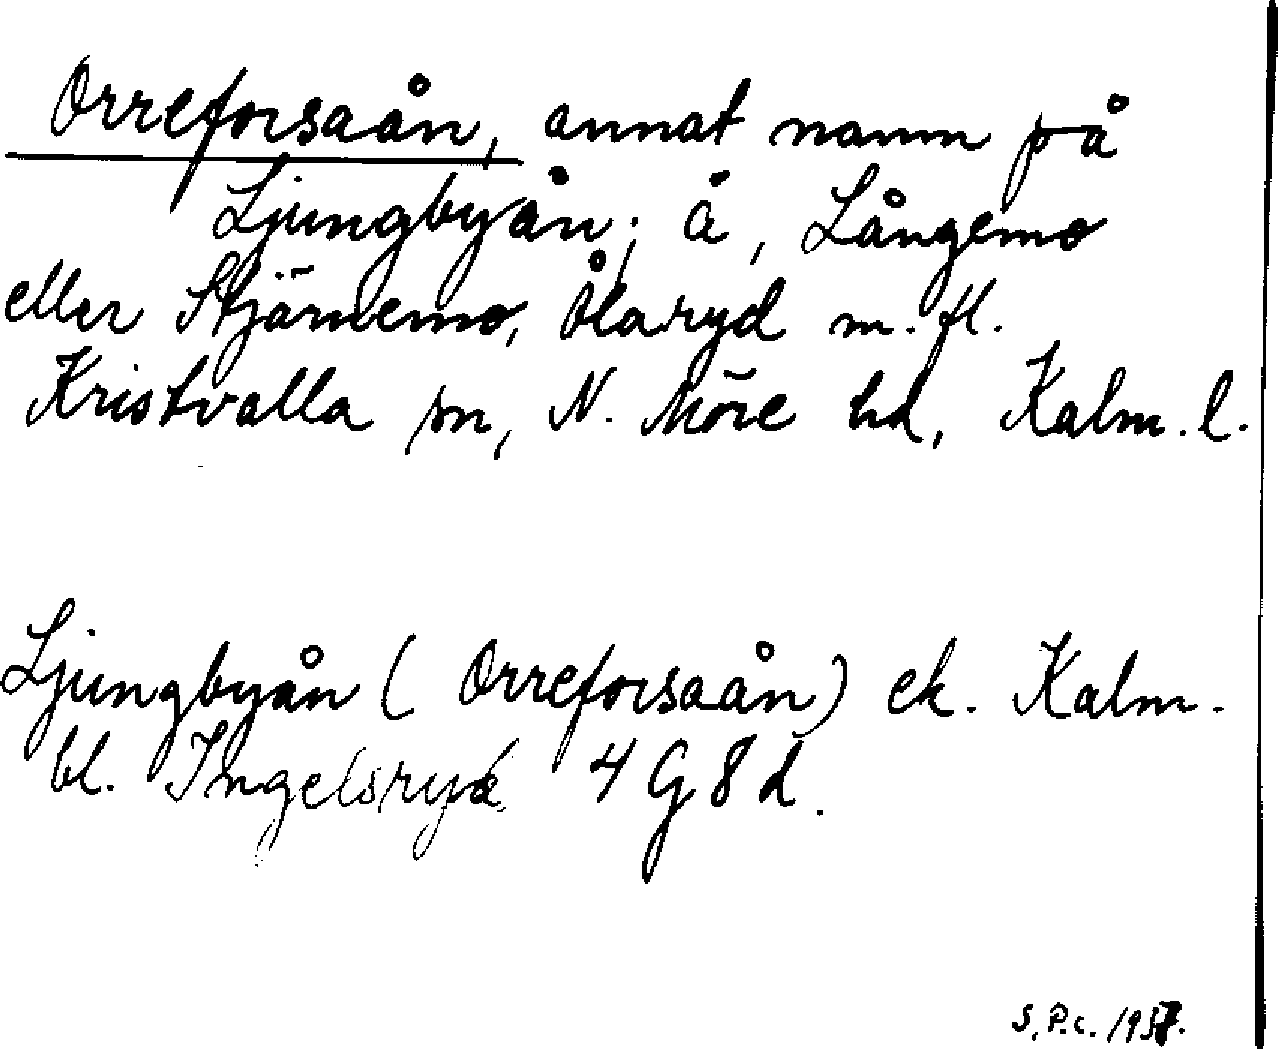 Orreforsaån, annat namn på
Ljungbyån; å, Långemo
eller Stjärnemo, Ålaryd m. fl.
Kristvalla sn, N. Möre hd, Kalm. l.
Ljungbyån (Orreforsaån) ek. Kalm.
bl. Ingelsryd 4 G 8 d.
S. P.c. 1957.